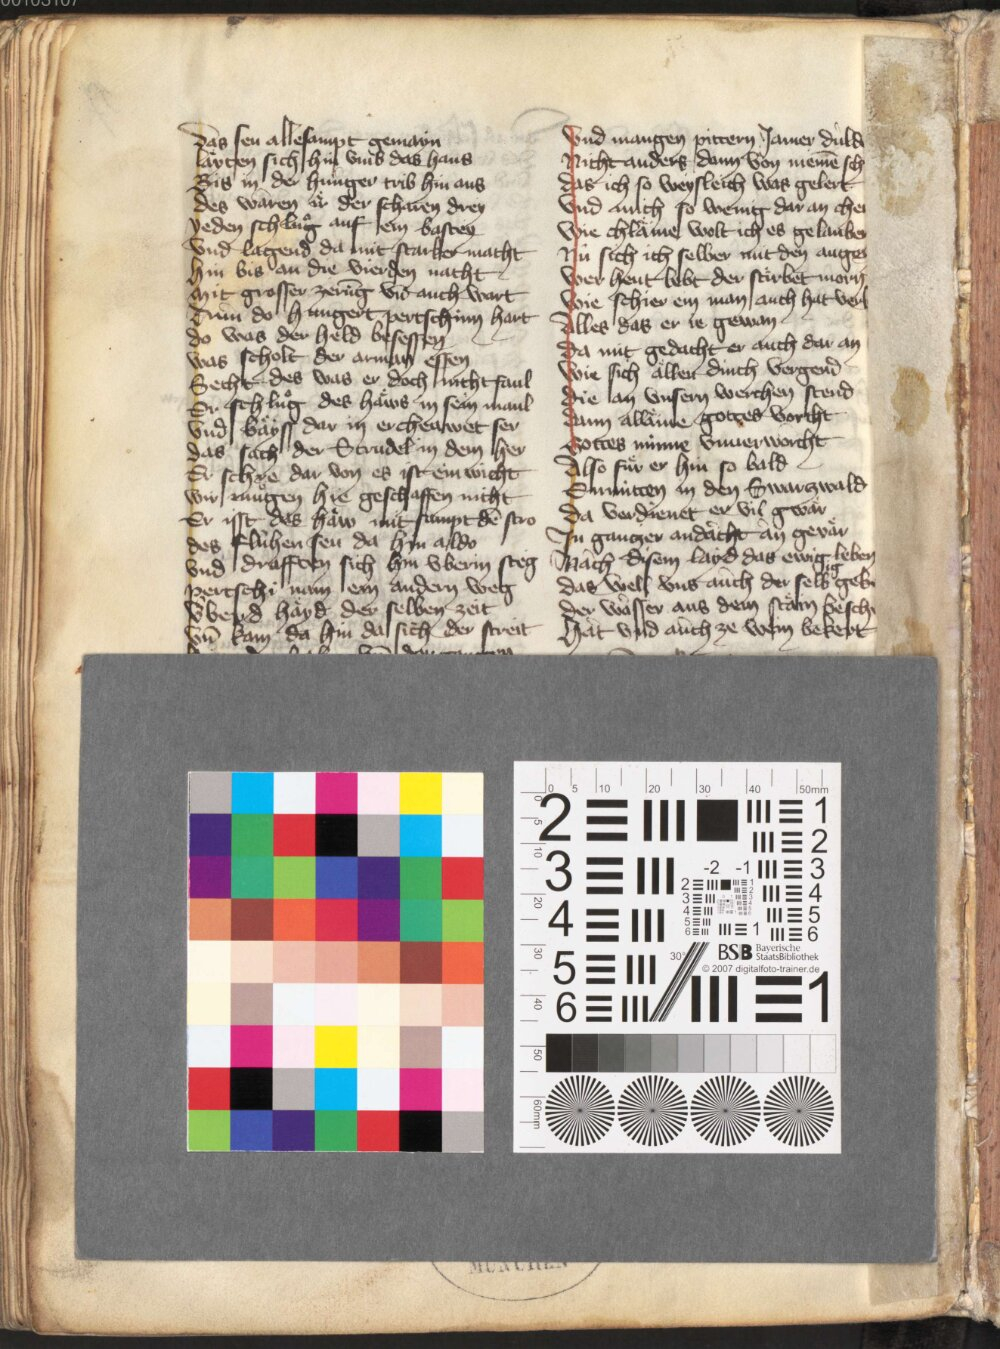 00103107
Das seu allesampt gemain
Lärten sich hin vmb das haus
Bis in der hunger trib hin aus
Des waren ir der scharen drey
Yeden schluog auf sein bastey
Vnd lagend da mit starker macht
Hin bis an die vierden nacht
Mit grosser zerung vnd auch wart
Dar
Do was der held besessen
Was scholt der arman essen
Secht des was er doch nicht faul
Er schluog des häws in sein maul
Vnd
Das sach der Strudel in dem her
Er schre dar von es ist ein wicht
Wir mugen hie geschaffen nicht
Er isst das häw mit sampt dem stro
Des fluhen seu da hin aldo
Vnd hin vberin steg
Pertschi nam ein andern weg
Vberd häyd der selben zeit
Vnd kam da hin da sich der streit
Vnd mangen pittern Jamer duld
Nicht anders dann von meinē sch
Das ich so weysleich was gelert
Vnd auch so wenig dar an cher
Wie chläine wolt ich es gelauben
Nu sich ich selber mit den augen
Wer heut lebt der stirbet morn
Wie schier ein man auch hat verl
Alles das er ie gewan
Da mit gedacht er auch dar an
Wie sichällen dinch vergend
Die an vnsern werchen stend
Dann alläine gottes vorcht
Gottes minne vnuerworcht
Also fur er hin so bald
Enmitten in den Swarzwald
Da verdienet er vil gwär
In ganczer andächt an gevär
Nach disem layd das ewig leben
Das well vns auch der selb geb
Der wasser aus dem stain besch
Hat vnd auch ze wein bekert
0 5 10 20 30 40 50mm
0 5 10 20 30 40 50 60mm
2 1
2
3 3
4 4
5 5
6 6
-2 -1
2 1
3 2
4 3
5 4
6 5
6
1
30°
BSB Bayerische
StaatsBibliothek
© 2007 digitalfoto-trainer.de
1
MÜNCHEN